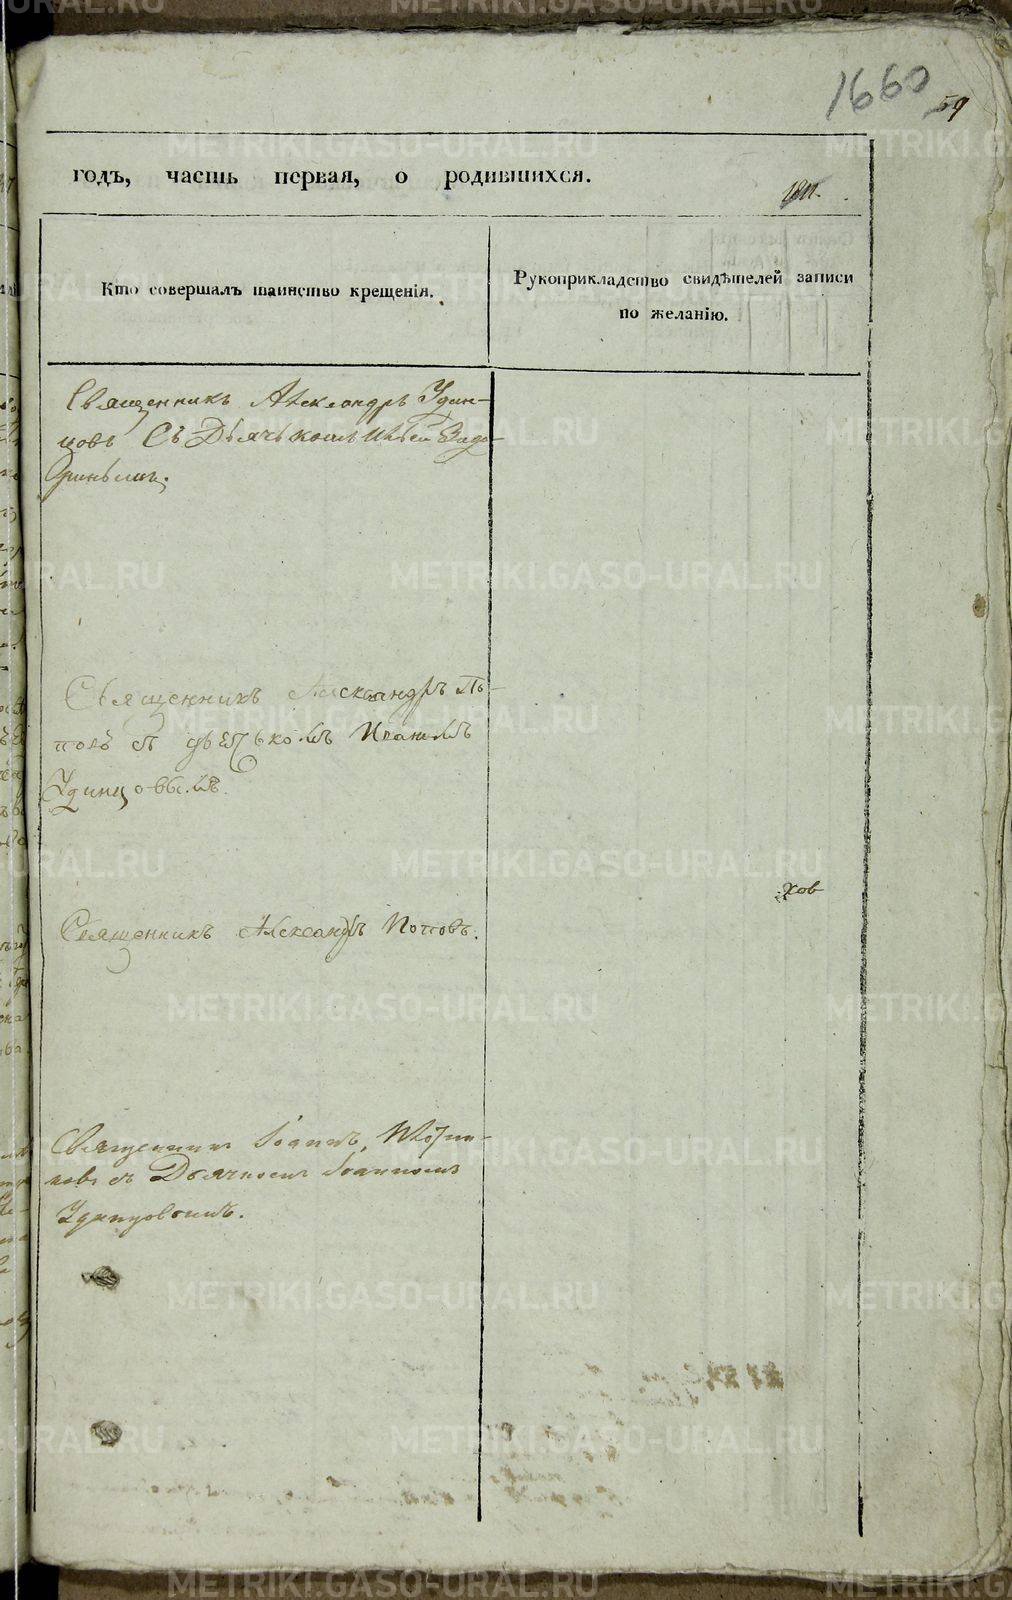 1660
59
годъ, часть первая, о родившихся.
Кто совершалъ таинство крещенія.
Рукоприкладство свидѣтелей записи
по желанію.
Священникъ Александръ Удин-
цовъ Съ Дьячькомъ
Священникъ Александръ По-
повъ съ дьячькомъ Иваномъ
Удинцовымъ.
хов
Священникъ Александръ Поповъ.
Священникъ Іоаннъ
съ Дьячкомъ Іоанномъ
Удинцовымъ.
METRIKI.GASO-URAL.RU